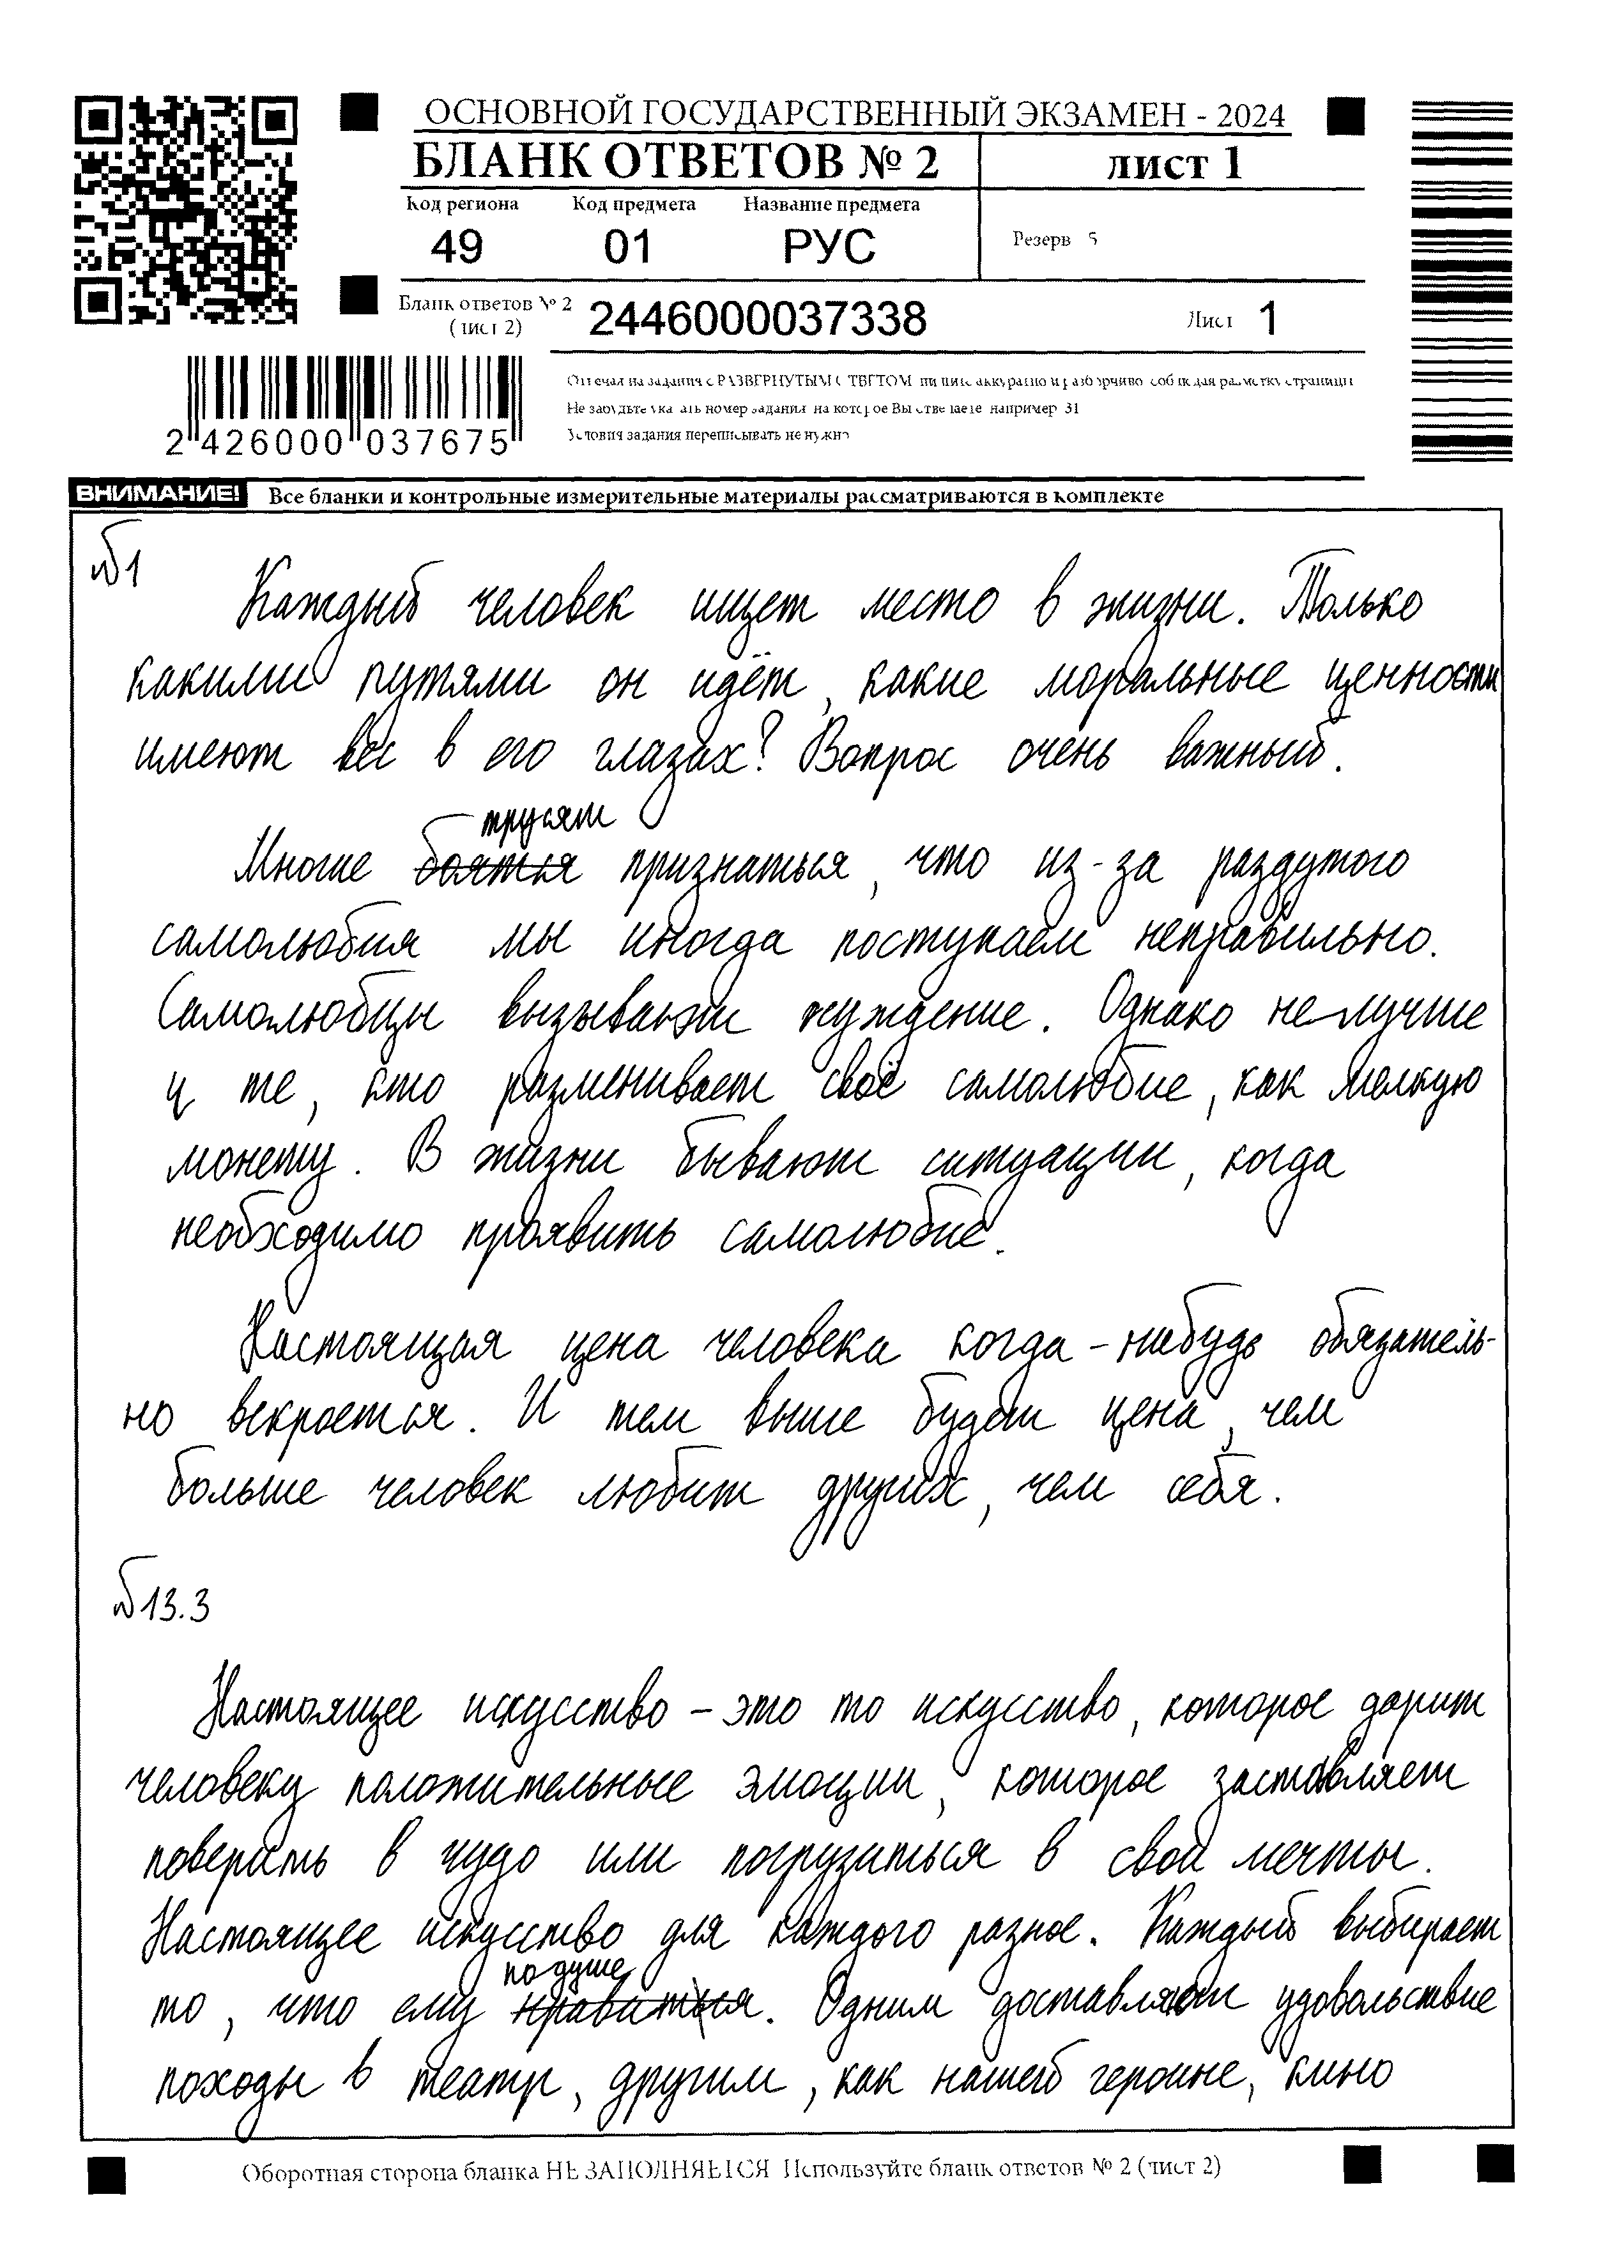 ОСНОВНОЙ ГОСУДАРСТВЕННЫЙ ЭКЗАМЕН - 2024
БЛАНК ОТВЕТОВ № 2
ЛИСТ 1
Код региона
Код предмета
Название предмета
49
01
РУС
Резерв 5
Бланк ответов № 2
(лист 2)
2446000037338
Лист 1
2 426000 037675
Отвечая на задания с РАЗВЕРНУТЫМ ОТВЕТОМ пишите аккуратно и разборчиво соблюдая разметку страницы
Не забудьте указать номер задания на которое Вы отвечаете например 31
Условия задания переписывать не нужно
ВНИМАНИЕ!
Все бланки и контрольные измерительные материалы рассматриваются в комплекте
№1
Каждый человек ищет место в жизни. Только
какими путями он идёт, какие моральные ценности
имеют вес в его глазах? Вопрос очень важный.
трусят
Многие боятся признаться, что из-за раздутого
самолюбия мы иногда поступаем неправильно.
Самолюбцы вызывают Однако не лучше
и те, кто разменивает своё самолюбие, как мелкую
монету. В жизни бывают ситуации, когда
необходимо проявить самолюбие.
Настоящая цена человека когда-нибудь обязатель-
но векроется. И тем выше будет цена, чем
больше человек любит других, чем себя.
№13.3
Настоящее искусство - это то искусство, которое дарит
человеку положительные эмоции, которое заставляет
поверить в чудо или погрузиться в свои мечты.
Настоящее искусство для каждого разное. Каждый выбирает
по душе
то, что ему нравиться. Одним доставляют удовольствие
походы в театр, другим, как нашей героине, кино
Оборотная сторона бланка НЕ ЗАПОЛНЯЕТСЯ Используйте бланк ответов № 2 (лист 2)